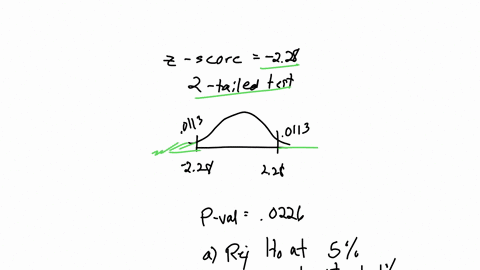 z-score = -2.28
2-tailed test
.0113 .0113
-2.28 2.28
P-val = .0226
a) Rej H₀ at 5%